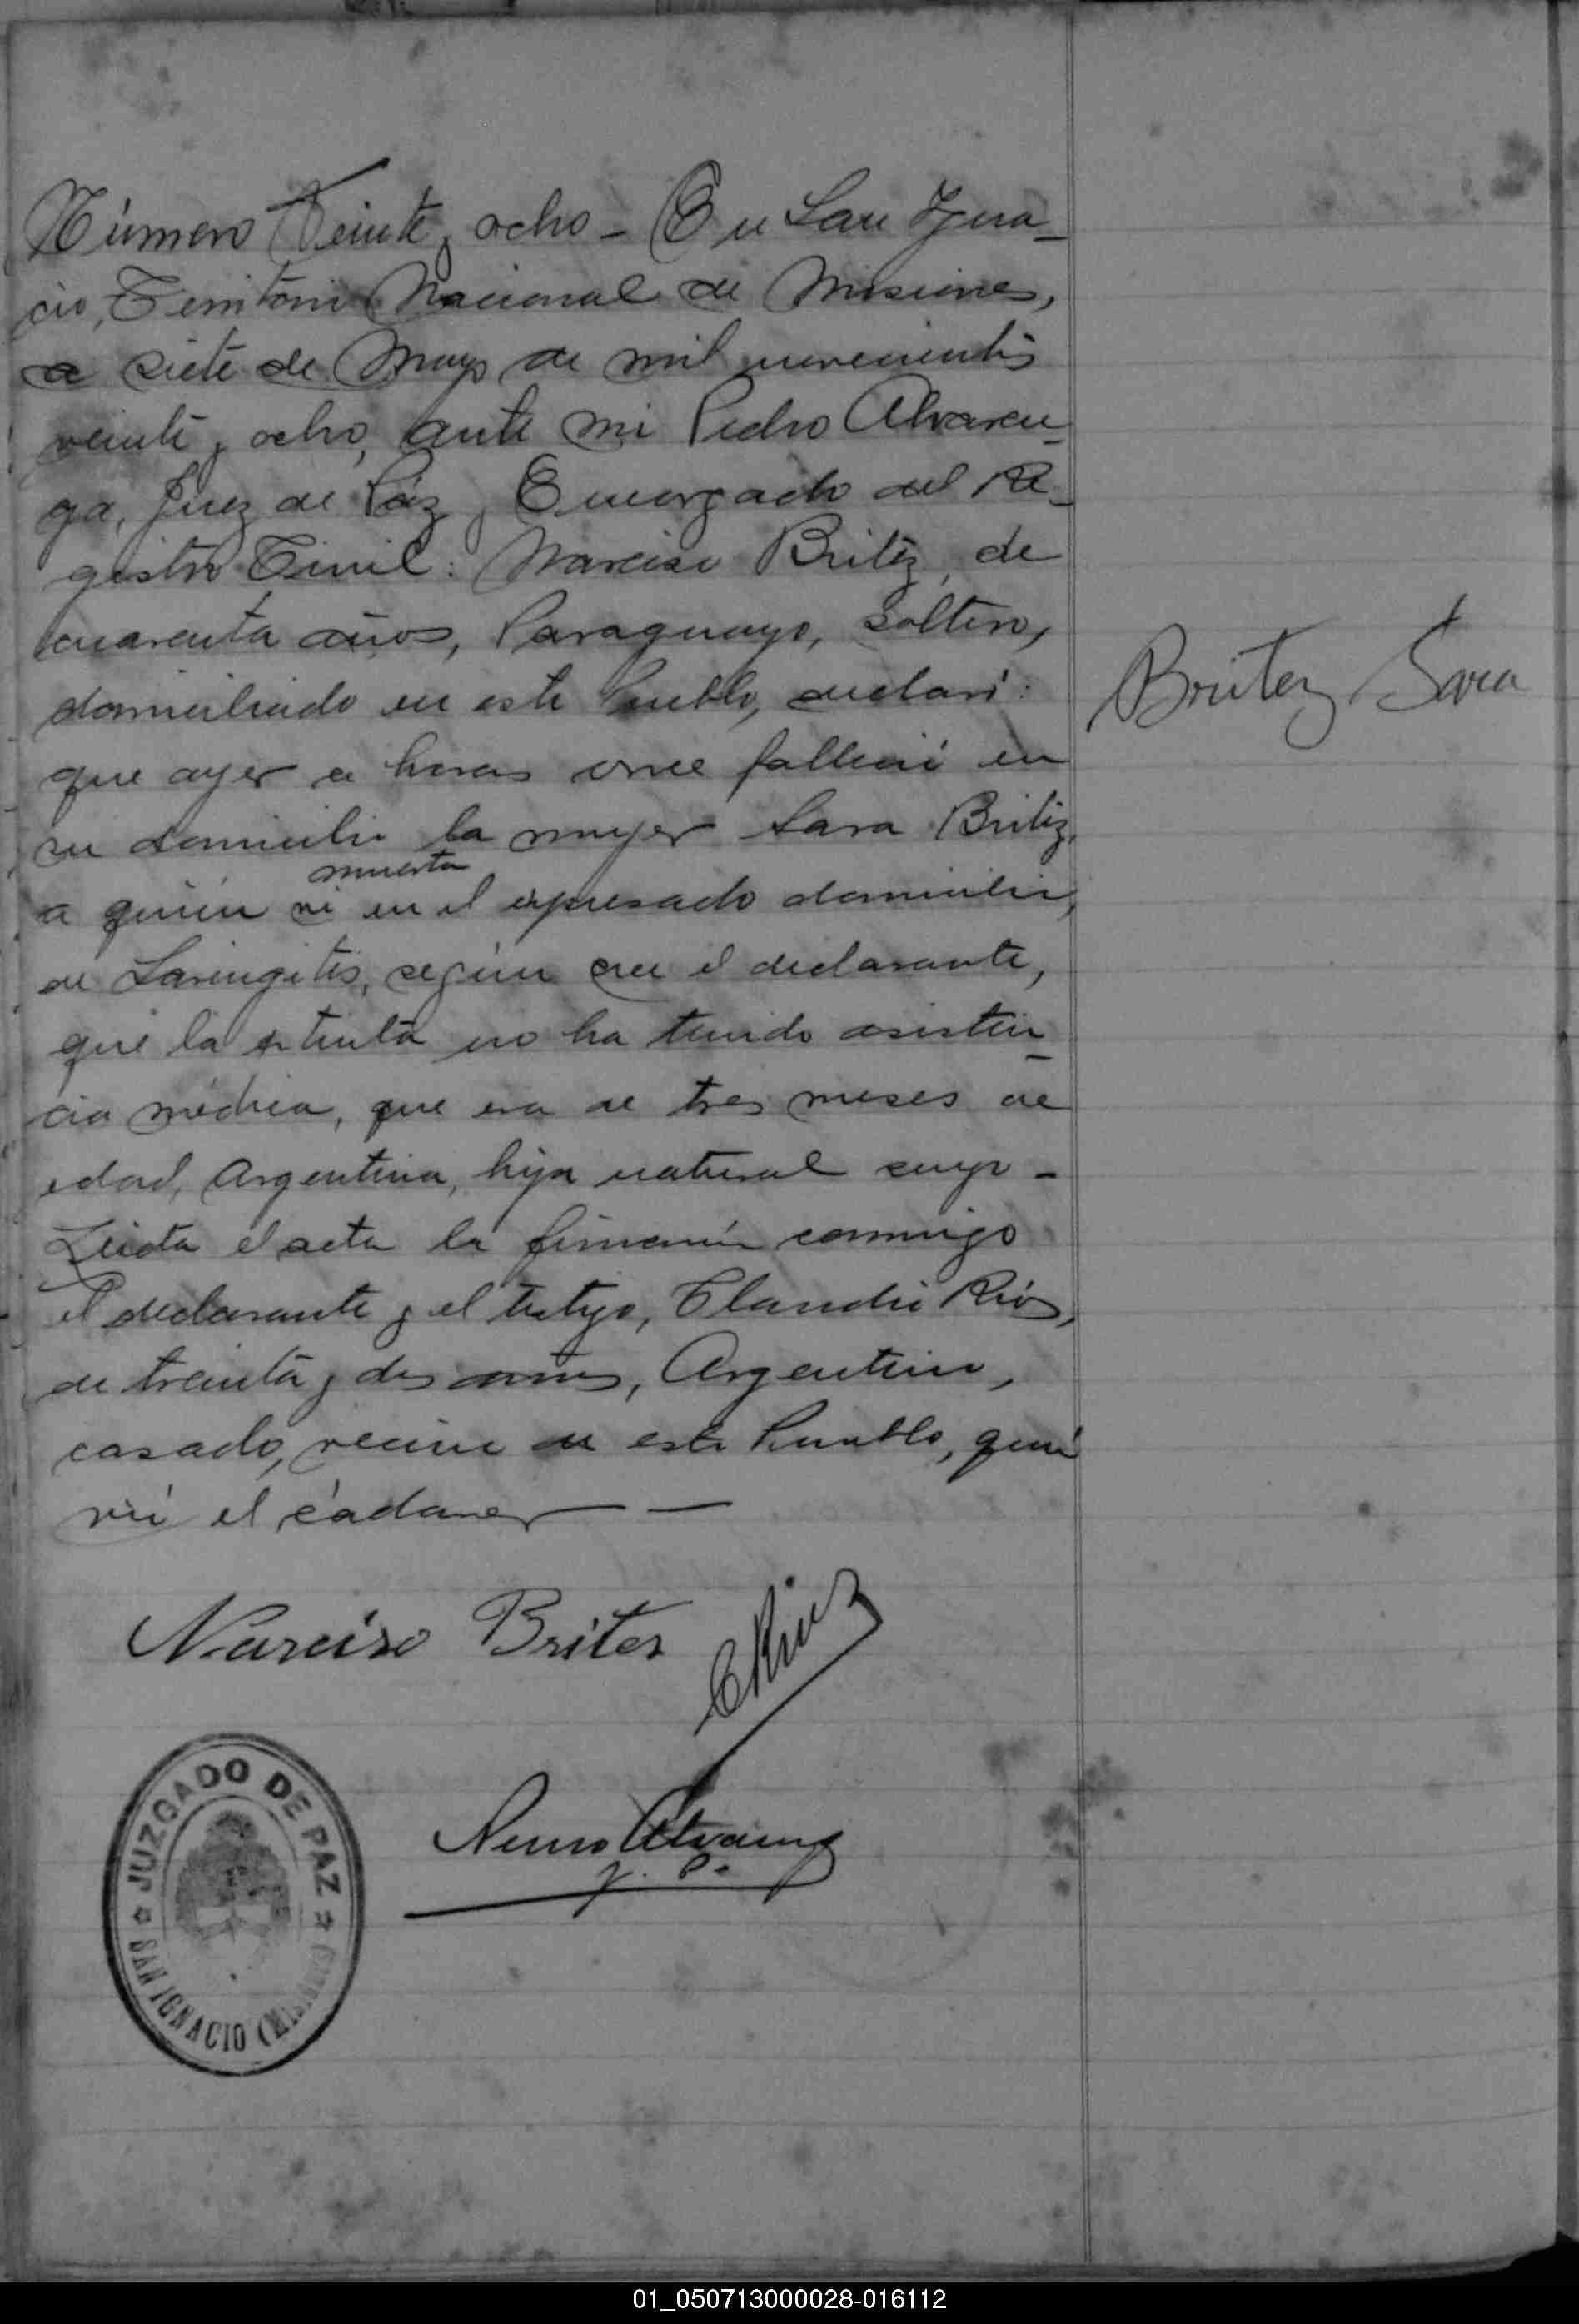 Número Veinte y ocho - En San Igna-
cio, Territorio Nacional de Misiones,
a siete de Mayo de mil novecientos
veinte y ocho, ante mi Pedro Alvaren-
ga, Juez de Páz y Encargado del Re-
gistro Civil: Narciso Britez, de
cuarenta años, Paraguayo, soltero,
domiciliado en este Pueblo, declaró:
que ayer a horas once falleció en
su domicilio la mujer Sara Britez,
muerta
a quien vi en el expresado domicilio,
de Laringitis, según cree el declarante,
que la extinta no ha tenido asisten-
cia médica, que era de tres meses de
edad, Argentina, hija natural suya -
Leida el acta la firmarón conmigo
el declarante y el testigo, Claudio Rios,
de treinta y dos años, Argentino,
casado, vecino de este Pueblo, quién
vió el cádaver — —
Britez Sara
Narciso Britez
CRios
Alvarenga
J. P.
JUZGADO DE PAZ
SAN IGNACIO (
01_050713000028-016112